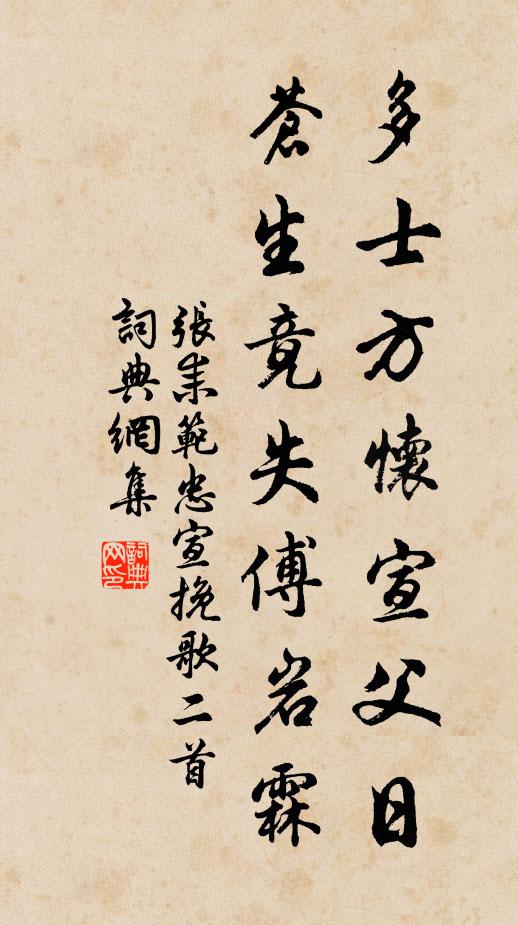 多士方懷宣父日
蒼生竟失傅岩霖
張耒範忠宣挽歌二首
詞典網集
詞典網印